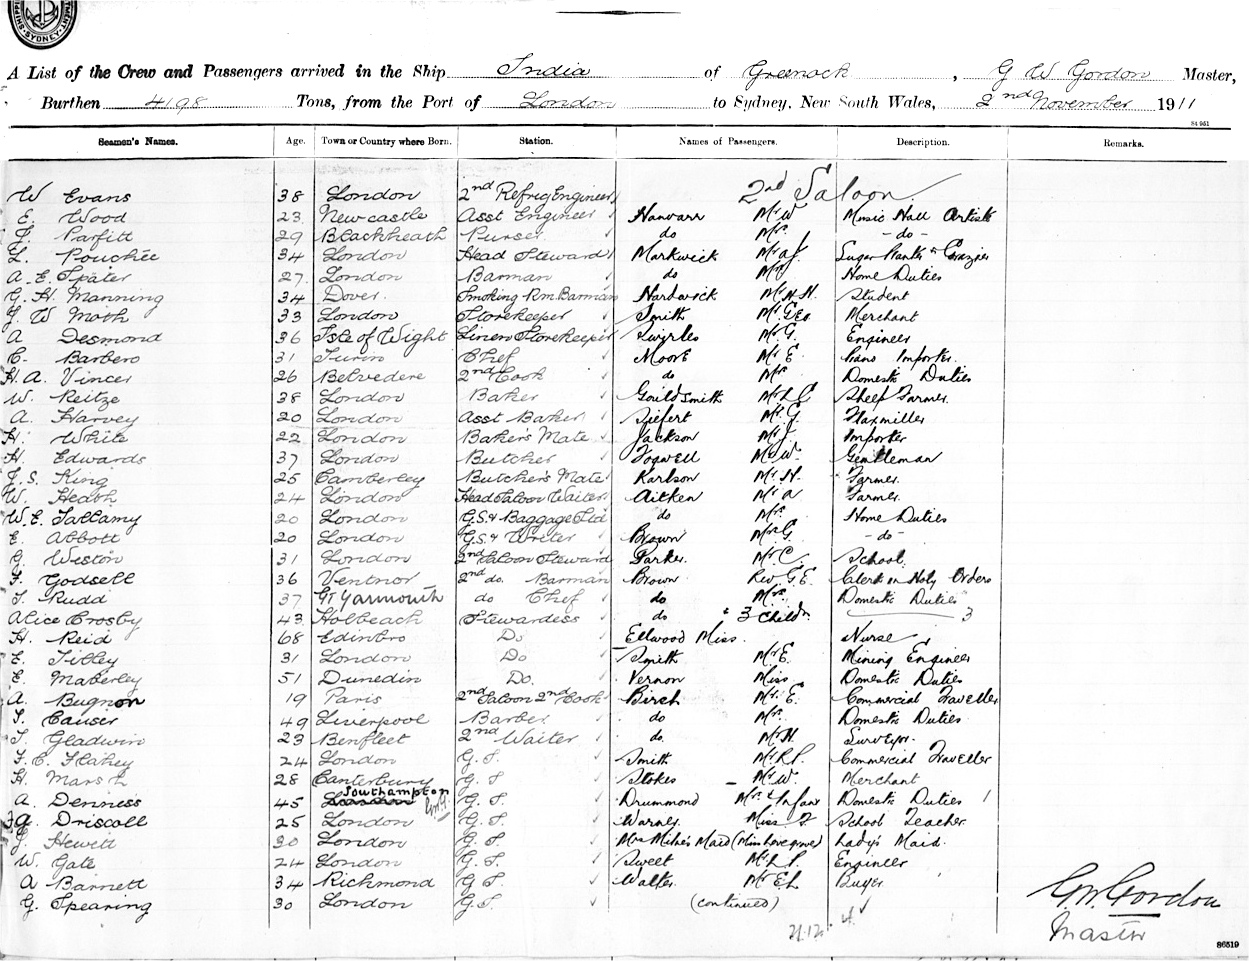 SHIPPING
SYDNEY
A List of the Crew and Passengers arrived in the Ship India of Greenock, G W Gordon Master,
Burthen 4198 Tons, from the Port of London to Sydney, New South Wales, 2nd November 1911
St 951
Seamen's Names. Age. Town or Country where Born. Station. Names of Passengers. Description. Remarks.
2nd Saloon
W Evans 38 London 2nd Refrig Engineer
E. Wood 23 Newcastle Asst Engineer Hanvarr Mr W Music Hall Artists
J. Parfitt 29 Blackheath Purser do Mrs - do -
L. Pouchée 34 London Head Steward Markwick Mr a J. Sugar Plantr & Grazier
A. E. Später 27 London Barman do Mrs Home Duties
G. H. Manning 34 Dover Smoking Rm. Barman Hardwick Mr H. H. Student
J. W Moth 33 London Storekeeper Smith Mr Geo Merchant
A Desmond 36 Isle of Wight Linen Storekeeper Swirles Mr G. Engineer
C. Barbero 31 Turin Chef Moore Mr E Piano Importer.
H. A. Vincer 26 Belvedere 2nd Cook do Mrs Domestic Duties
W. Reitze 38 London Baker Gouldsmith Mr L C Sheep Farmer
A. Harvey 20 London Asst Baker Siefert Mr G. Flaxmiller
H. White 22 London Bakers Mate Jackson Mr J. Importer
H. Edwards 37 London Butcher Fogwell Mr W. Gentleman
J. S. King 25 Camberley Butcher's Mate Karlson Mr H. Farmer
W. Heath 24 London Head Saloon Waiter Aitken Mr a Farmer
W. E. Tallamy 20 London G.S. & Baggage Std do Mrs Home Duties
E. Abbott 20 London G.S. & Writer Brown Mrs G - do -
G. Weston 31 London 2nd Saloon Steward Parker Mr C. School
F. Godsell 36 Ventnor 2nd do. Barman Brown Rev G. E. Clerk in Holy Orders
T. Rudd 37 Gt Yarmouth do Chef do Mrs Domestic Duties
Alice Crosby 43 Holbeach Stewardess do & 3 Childn 3
H. Reid 68 Edinbro Do Ellwood Miss Nurse
E. Tilley 31 London Do Smith Mr E. Mining Engineer
E. Maberley 51 Dunedin Do. Vernon Miss Domestic Duties
A. Bugnon 19 Paris 2nd Saloon 2nd Cook Birch Mr E. Commercial Traveller
T. Causer 49 Liverpool Barber do Mrs Domestic Duties
T. Gladwin 23 Benfleet 2nd Waiter do. Mr H. Surveyor
F. C. Flahey 24 London G. S. Smith Mr R. P. Commercial Traveller
H. Marsh 28 Canterbury G. S Stokes Mr W. Merchant
A. Denness 45 London Southampton G. S. Drummond Mrs & Infant Domestic Duties 1
J. G. Driscoll 25 London G. S. Warner Miss F School Teacher
J. Hewitt 30 London G. S. Mrs Milne's Maid (Miss Lovegrove) Lady's Maid
W. Gate 24 London G. S. Sweet Mr L. P. Engineer
A Barnett 34 Richmond G S Walter Mr E L Buyer
G. Spearing 30 London G.S. (continued)
G. W. Gordon
Master
21.12. 4.
86519